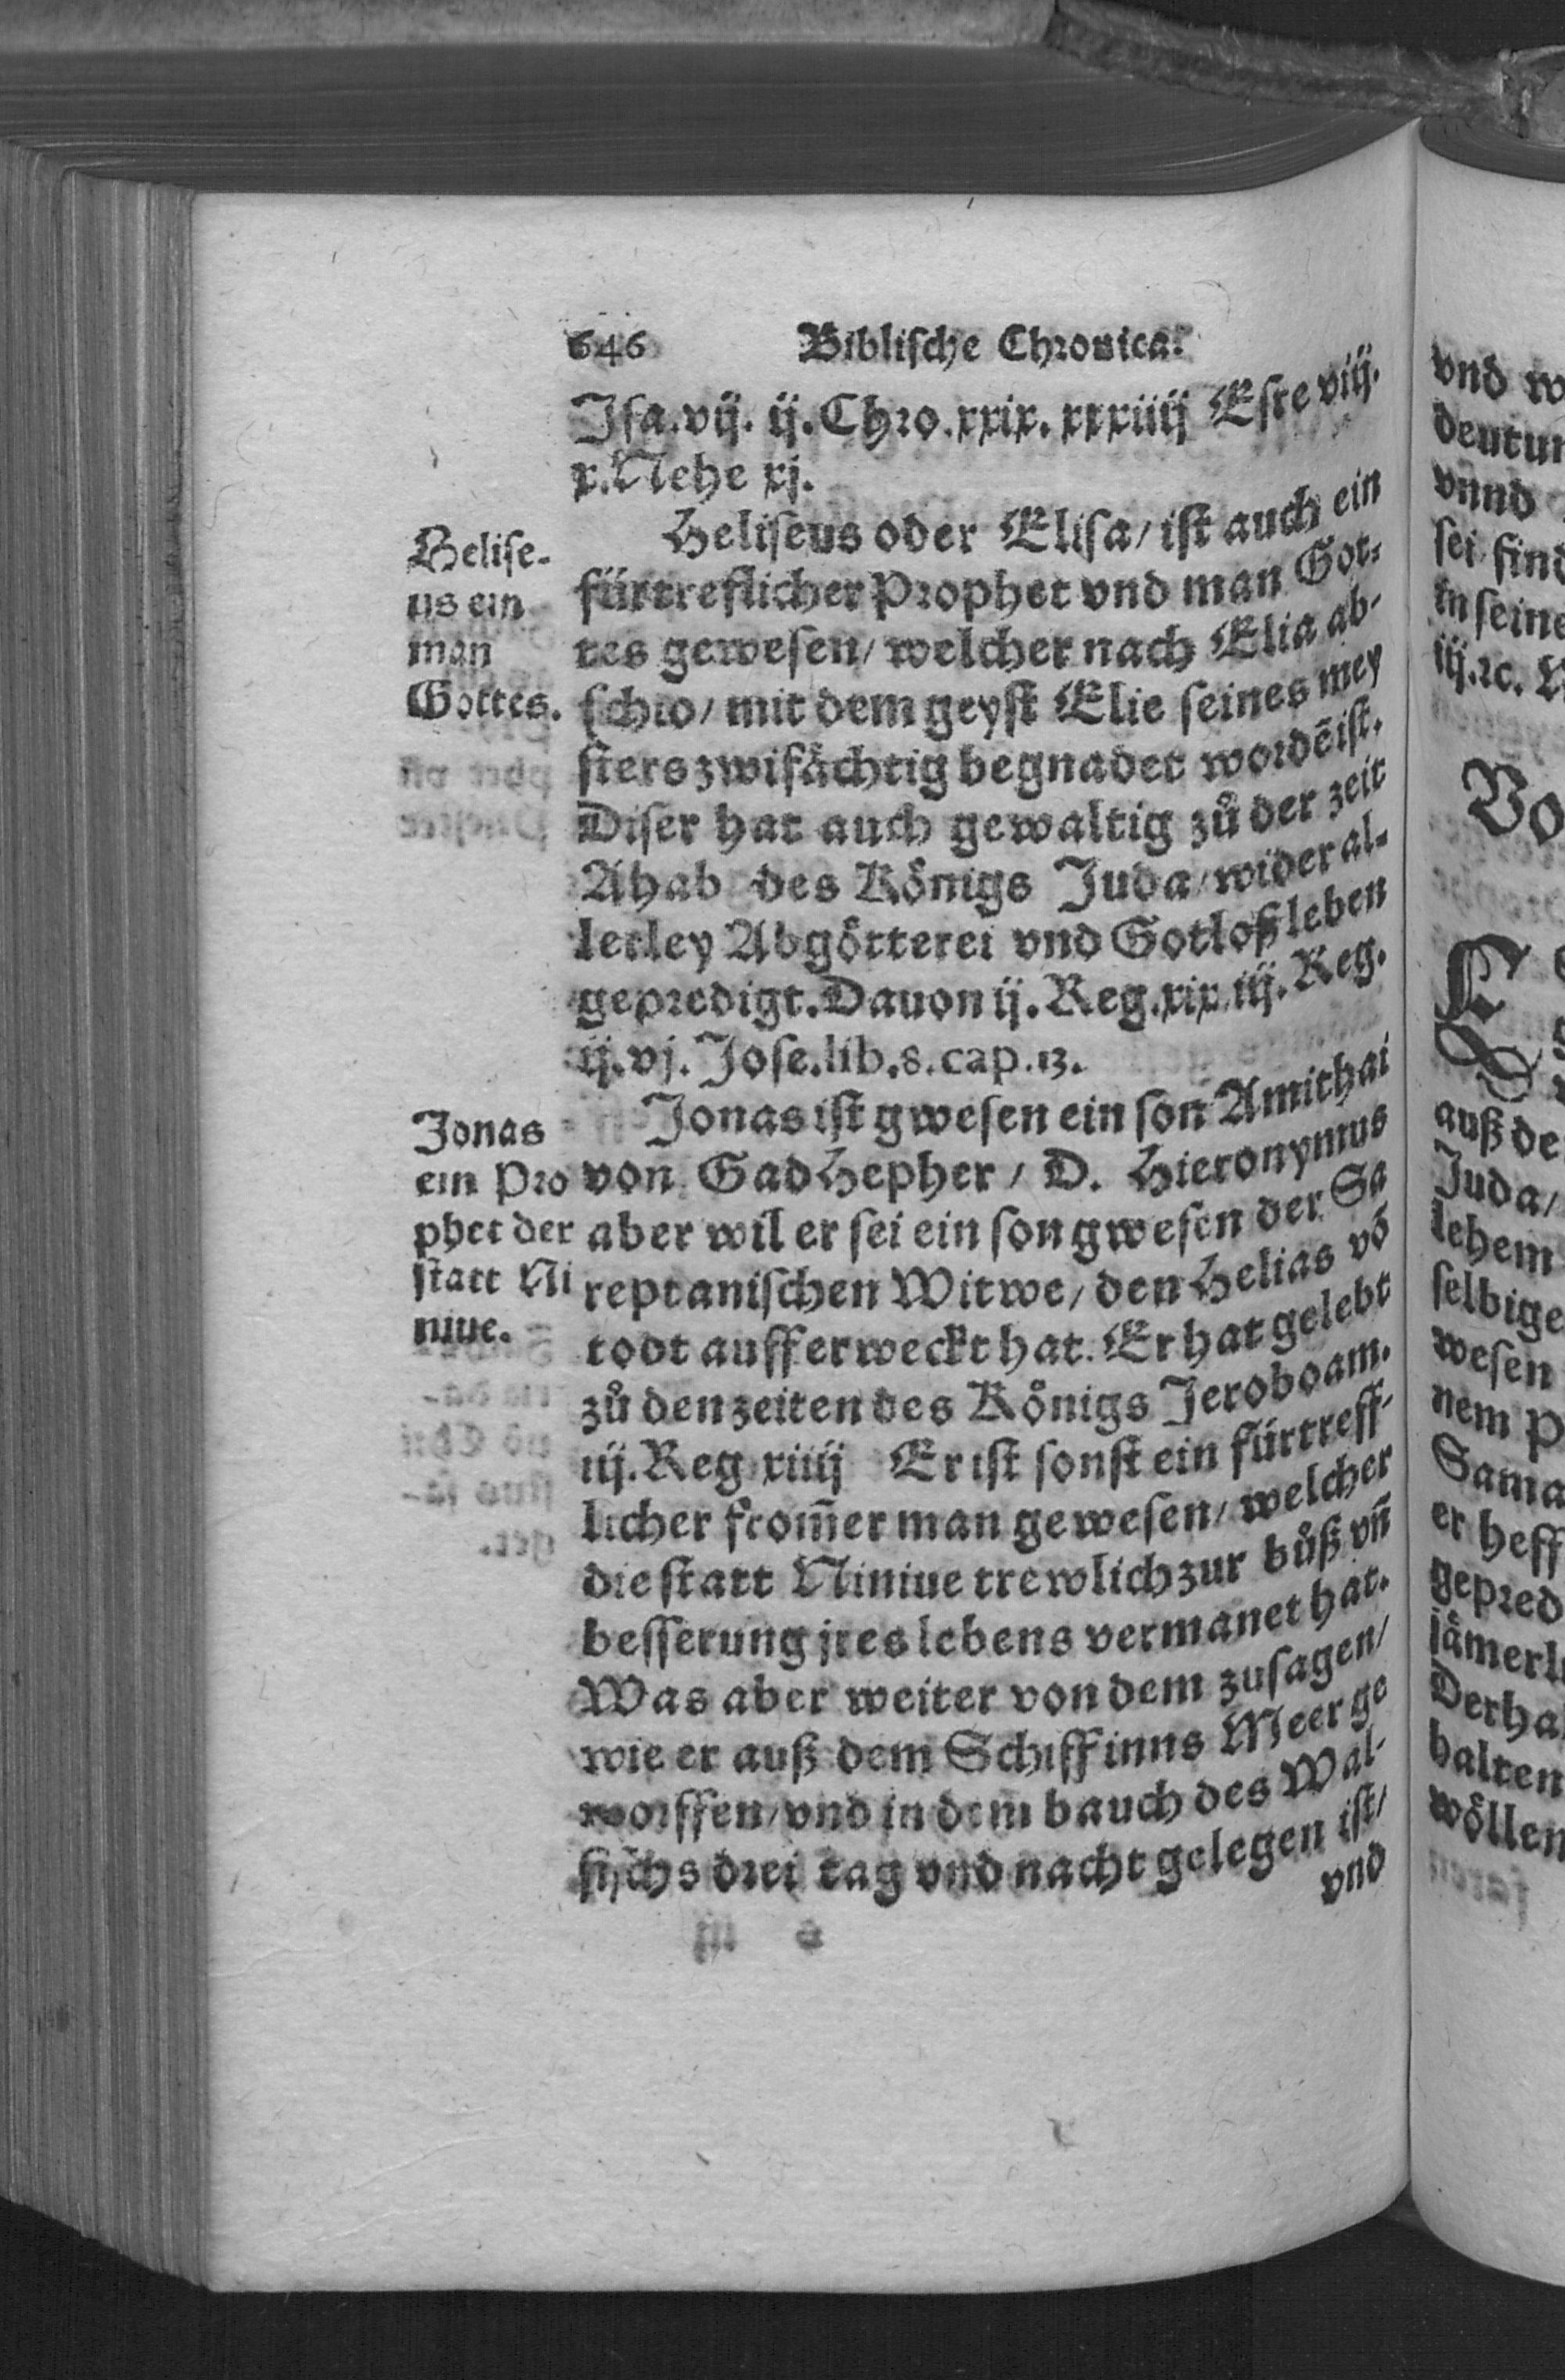 646 Biblische Chronica.
Jsa.vij. ij.Chro.xxix. xxxiiij Esre viij.
x.Nehe xj.
Helise-
us ein
man
Gottes.
Heliseus oder Elisa/ ist auch ein
fürtreflicher Prophet vnd man Got-
tes gewesen/ welcher nach Elia ab-
schid/ mit dem geyst Elie seines mey
sters zwifåchtig begnadet wordē ist.
Diser hat auch gewaltig zů der zeit
Ahab des Königs Juda/ wider al-
lerley Abgötterei vnd Gotloß leben
gepredigt. Dauon ij. Reg.xix. iij. Reg.
ij.vj. Jose.lib.8.cap.13.
Jonas
ein Pro
phet der
statt Ni
niue.
Jonas ist gwesen ein son Amithai
von Gad Hepher / D. Hieronymus
aber wil er sei ein son gwesen der Sa
reptanischen Witwe/ den Helias vō
todt aufferweckt hat. Er hat gelebt
zů den zeiten des Königs Jeroboam.
iij.Reg xiiij Er ist sonst ein fürtreff-
licher from̄er man gewesen/ welcher
die statt Niniue trewlich zur bůß vn̄
besserung jres lebens vermanet hat.
Was aber weiter von dem zusagen/
wie er auß dem Schiff inns Meer ge
worffen/ vnd in dem bauch des Wal-
fischs drei tag vnd nacht gelegen ist/
vnd
vnd w
deutun
vnnd
sei find
in seine
iij.ꝛc.
Vo
auß de
Juda/
lehem
selbige
wesen
nem P
Sama
er heff
gepred
jåmerl
Derha
halten
wöllen